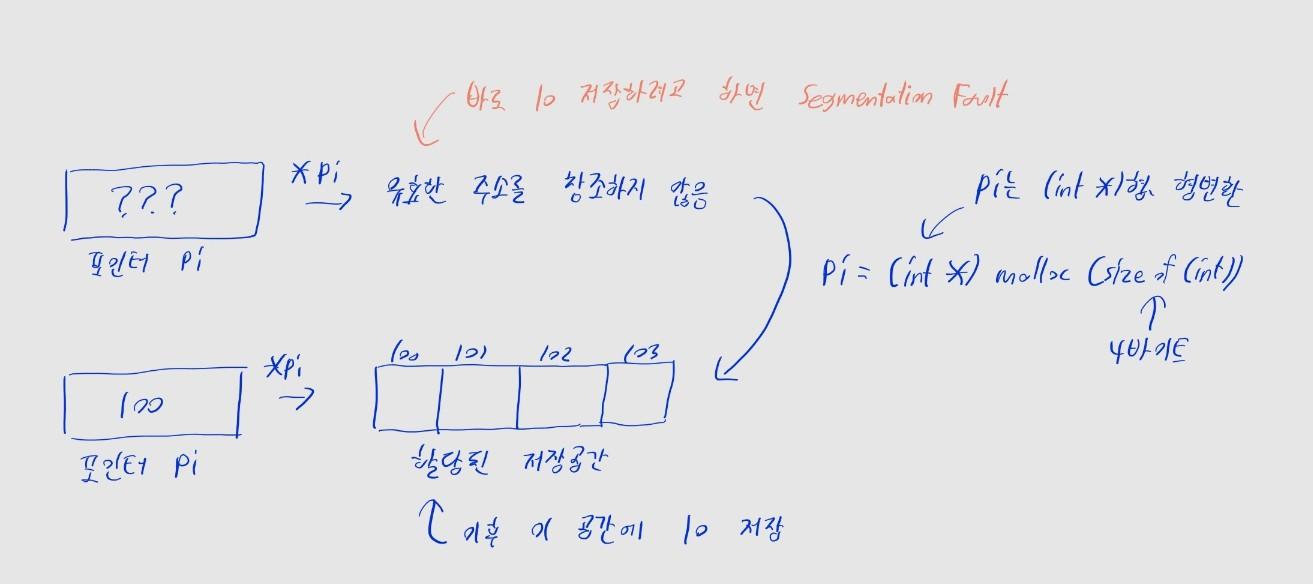 바로 10 저장하려고 하면 Segmentation Fault
???
*Pi
유효한 주소를 참조하지 않음
포인터 Pi
Pi는 (int *)형, 형변환
Pi = (int *) malloc (size of (int))
4바이트
100
*Pi
포인터 Pi
100 101 102 103
할당된 저장공간
이후 이 공간에 10 저장